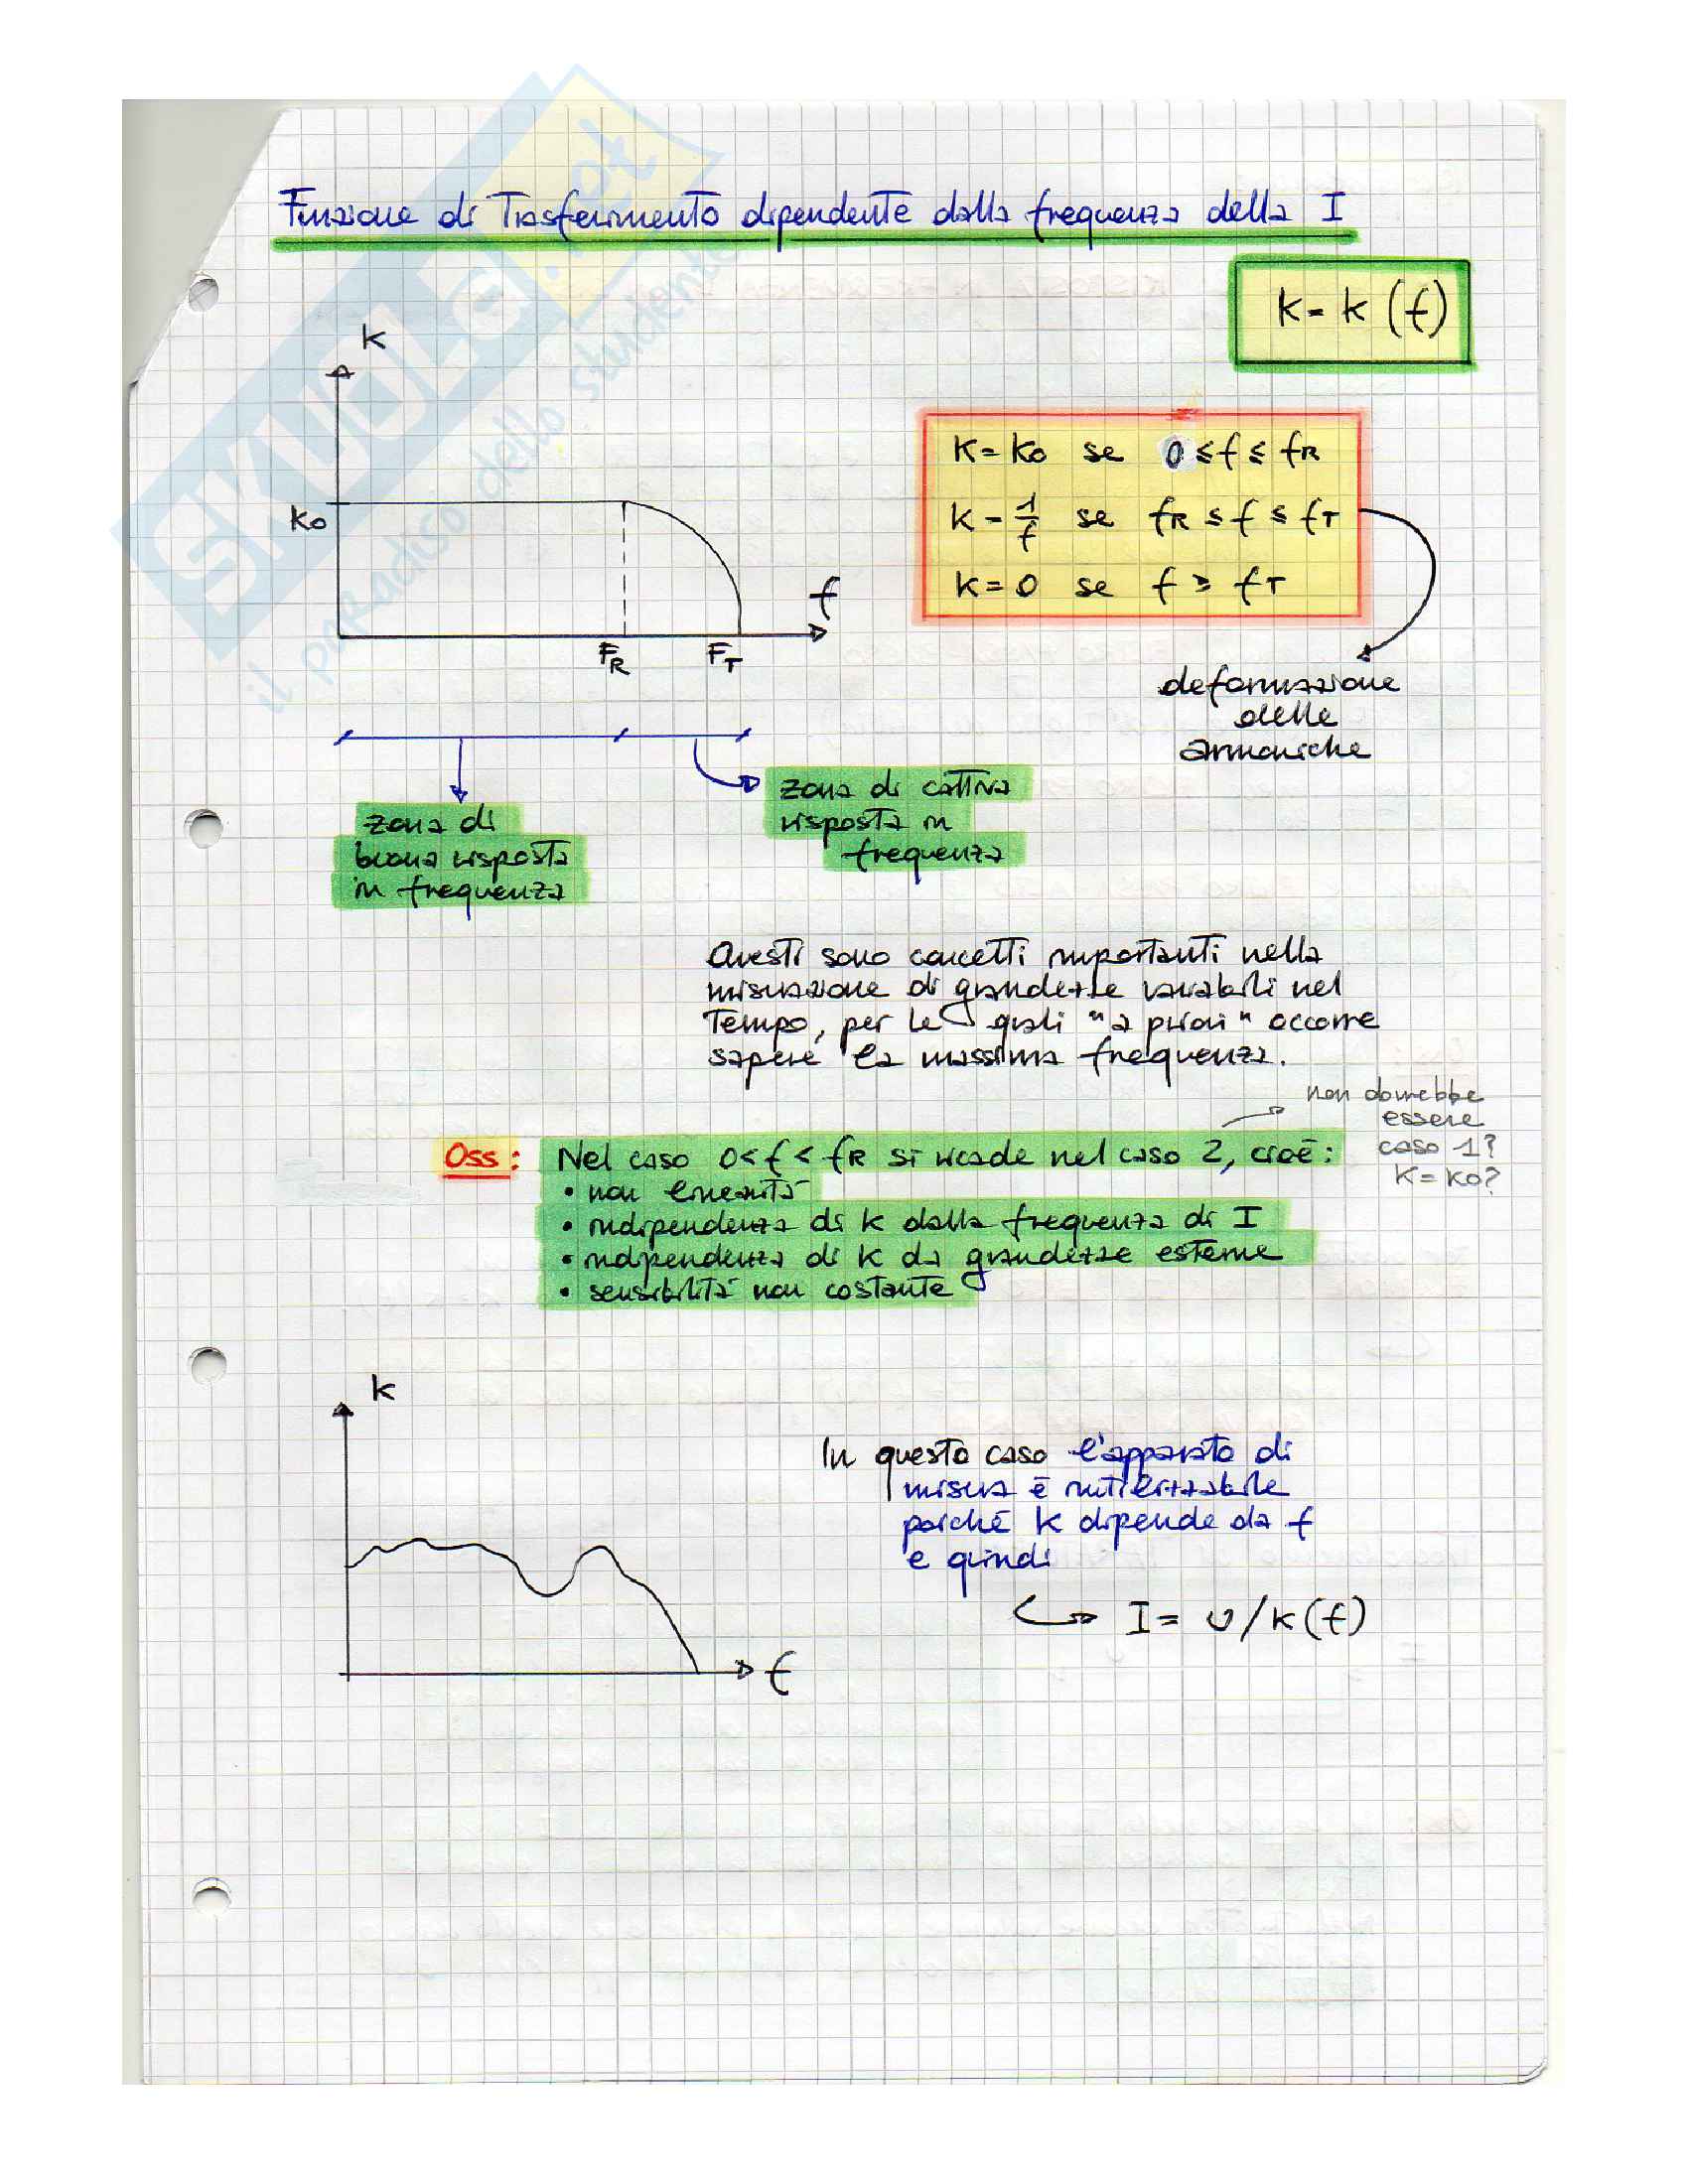 Funzione di Trasferimento dipendente dalla frequenza della I
K = K (f)
K
K = Ko se 0 ≤ f ≤ fR
K = 1/f se fR ≤ f ≤ fT
K = 0 se f > fT
Ko
f
FR
FT
deformazione
delle
armoniche
zona di
buona risposta
in frequenza
zona di cattiva
risposta in
frequenza
Questi sono concetti importanti nella
misurazione di grandezze variabili nel
Tempo, per le quali "a priori" occorre
sapere la massima frequenza.
non dovrebbe
essere
caso 1?
K = Ko?
Oss: Nel caso 0 < f < fR si ricade nel caso 2, cioè:
• non linearità
• indipendenza di K dalla frequenza di I
• indipendenza di K da grandezze esterne
• sensibilità non costante
K
f
In questo caso l'apparato di
misura è inutilizzabile
poiché K dipende da f
e quindi
I = U/K(f)
SKUOLA.net
il paradiso dello studente